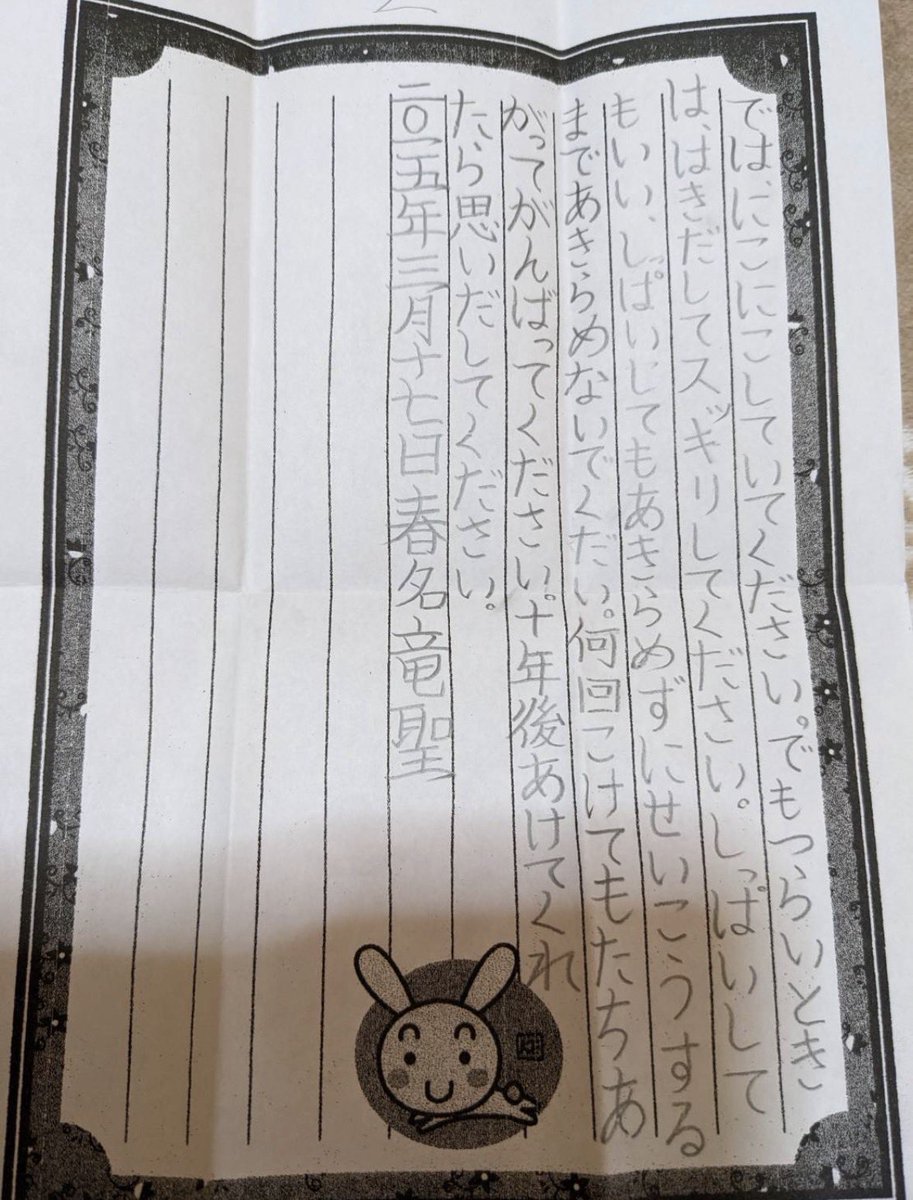 では、にこにこしていてください。でもつらいとき
は、はきだしてスッキリしてください。しっぱいして
もいい、しっぱいしてもあきらめずにせいこうする
まであきらめないでくだい。何回こけてもたちあ
がってがんばってください。十年後あけてくれ
たら思いだしてください。
二〇一五年三月十七日春名竜聖